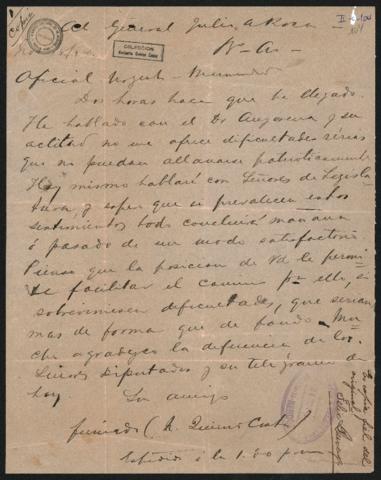 Copia
Al General Julio A Roca
II-6-104
Bs-As-
COLECCION
Oficial Urgente -
Dos horas hace que he llegado.
He hablado con el Dr y su
actitud no me ofrece dificultades sérias
que no puedan allanarse patrioticamente
Hoy mismo hablaré con Señores de Legisla-
tura, y espero que si prevalecen estos
sentimientos todo concluirá mañana
ó pasado de un modo satisfactorio
Pienso que la posicion de Vd le permi-
te facilitar el camino pr ello, si
sobreviniesen dificultades, que serian
mas de forma que de fondo - Mu-
cho agradezco la deferencia de los
Señores Diputados y su telegrama de
hoy Su amigo
firmado (
Espedido á la 1.30 p m
Es copia fiel del
original